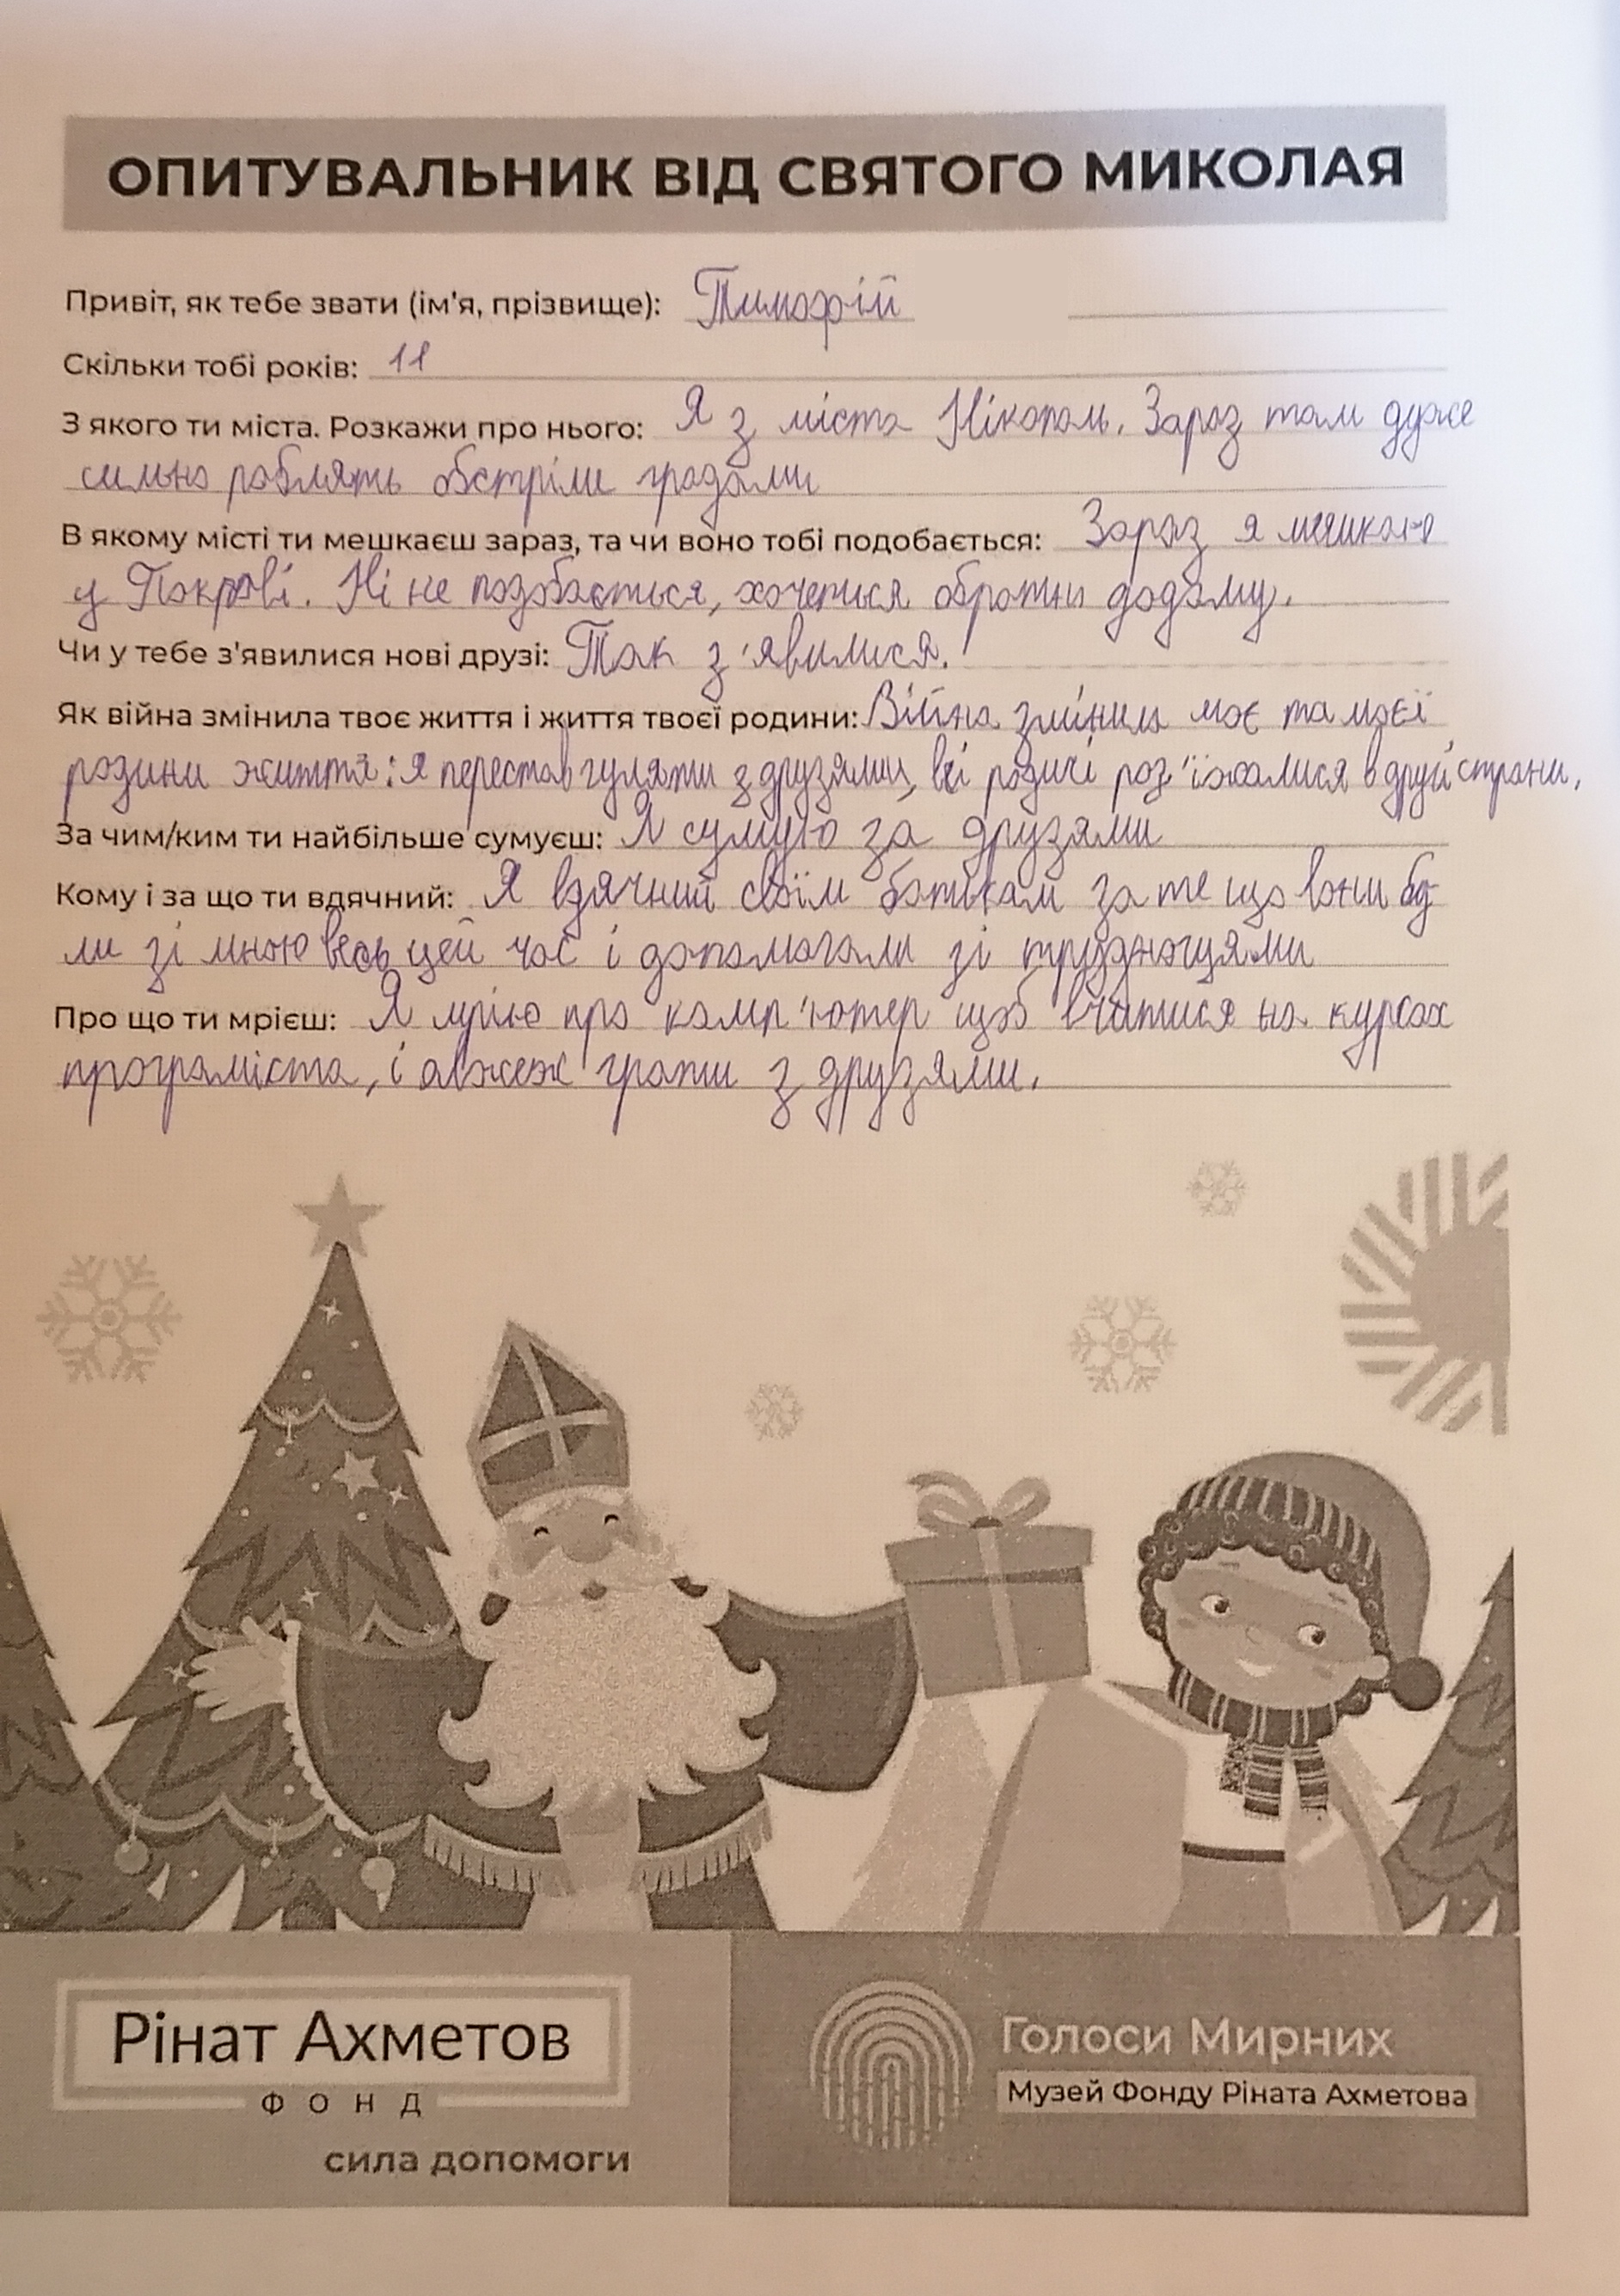 ОПИТУВАЛЬНИК ВІД СВЯТОГО МИКОЛАЯ
Привіт, як тебе звати (ім'я, прізвище): Тимофій
Скільки тобі років: 11
З якого ти міста. Розкажи про нього: Я з міста Нікополь. Зараз там дуже
сильно роблять обстріли градами
В якому місті ти мешкаєш зараз, та чи воно тобі подобається: Зараз я мешкаю
у Покрові. Ні не подобається, хочеться обратно додому.
Чи у тебе з'явилися нові друзі: Так з'явилися.
Як війна змінила твоє життя і життя твоєї родини: Війна змінила моє та моєї
родини життя: я перестав гуляти з друзями, всі родичі роз'їхалися в другі страни.
За чим/ким ти найбільше сумуєш: Я сумую за друзями
Кому і за що ти вдячний: Я вдячний своїм батькам за те що вони бу-
ли зі мною весь цей час і допомагали зі труднощями
Про що ти мрієш: Я мрію про комп'ютер щоб вчитися на курсах
програміста, і авжеж грати з друзями.
Рінат Ахметов
ФОНД
сила допомоги
Голоси Мирних
Музей Фонду Ріната Ахметова